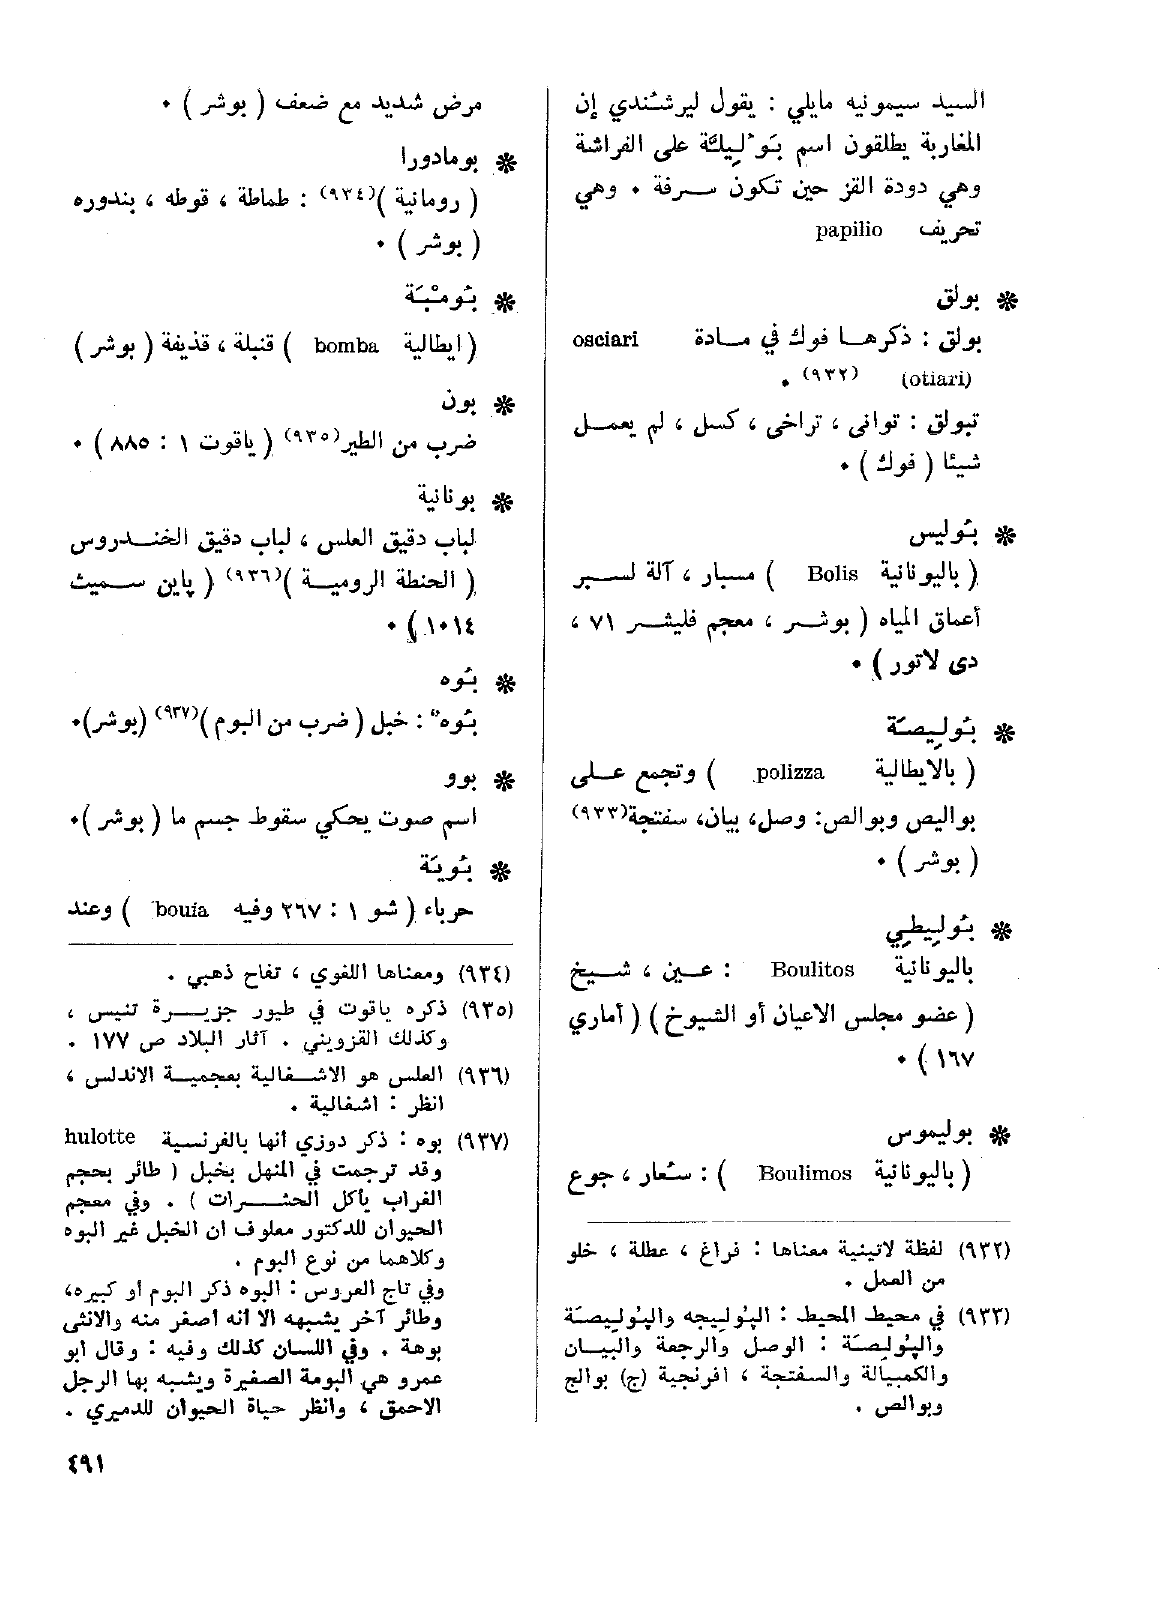 السيد سيمونيه مايلي : يقول ليرشندي إن
المغاربة يطلقون اسم بَوْلِيِكَة على الفراشة
وهي دودة القز حين تكون سرفة . وهي
تحريف papilio
* بولق
بولق : ذكرها فوك في مادة osciari
(otiari) (٩٣٢) .
تبولق : توانى ، تراخى ، كسل ، لم يعمل
شيئا ( فوك ) .
* بُوليس
( باليونانية Bolis ) مسبار ، آلة لسبر
أعماق المياه ( بوشر ، معجم فليشر ٧١ ،
دى لاتور ) .
* بُولِيصَة
( بالايطالية polizza ) وتجمع على
بواليص وبوالص: وصل، بيان، سفتجة(٩٣٣)
( بوشر ) .
* بُولِيطِي
باليونانية Boulitos : عين ، شيخ
( عضو مجلس الاعيان أو الشيوخ ) ( أماري
١٦٧ ) .
* بوليموس
( باليونانية Boulimos ) : سُعار ، جوع
(٩٣٢) لفظة لاتينية معناها : فراغ ، عطلة ، خلو
من العمل .
(٩٣٣) في محيط المحيط : البُولِيجه والبُولِيصَة
والبُولِصَة : الوصل والرجعة والبيان
والكمبيالة والسفتجة ، افرنجية (ج) بوالج
وبوالص .
مرض شديد مع ضعف ( بوشر ) .
* بومادورا
( رومانية )(٩٣٤) : طماطة ، قوطه ، بندوره
( بوشر ) .
* بُومْبَة
( ايطالية bomba ) قنبلة ، قذيفة ( بوشر )
* بون
ضرب من الطير(٩٣٥) ( ياقوت ١ : ٨٨٥ ) .
* بونانية
لباب دقيق العلس ، لباب دقيق الخندروس
( الحنطة الرومية )(٩٣٦) ( پاين سميث
١٠١٤ ) .
* بُوه
بُوه : خبل ( ضرب من البوم )(٩٣٧) (بوشر).
* بوو
اسم صوت يحكي سقوط جسم ما ( بوشر ).
* بُويَة
حرباء ( شو ١ : ٢٦٧ وفيه bouia ) وعند
(٩٣٤) ومعناها اللغوي ، تفاح ذهبي .
(٩٣٥) ذكره ياقوت في طيور جزيرة تنيس ،
وكذلك القزويني . آثار البلاد ص ١٧٧ .
(٩٣٦) العلس هو الاشقالية بعجمية الاندلس ،
انظر : اشقالية .
(٩٣٧) بوه : ذكر دوزي انها بالفرنسية hulotte
وقد ترجمت في المنهل بخبل ( طائر بحجم
الغراب يأكل الحشرات ) . وفي معجم
الحيوان للدكتور معلوف ان الخبل غير البوه
وكلاهما من نوع البوم .
وفي تاج العروس : البوه ذكر البوم أو كبيره،
وطائر آخر يشبهه الا انه اصغر منه والانثى
بوهة . وفي اللسان كذلك وفيه : وقال ابو
عمرو هي البومة الصغيرة ويشبه بها الرجل
الاحمق ، وانظر حياة الحيوان للدميري .
٤٩١